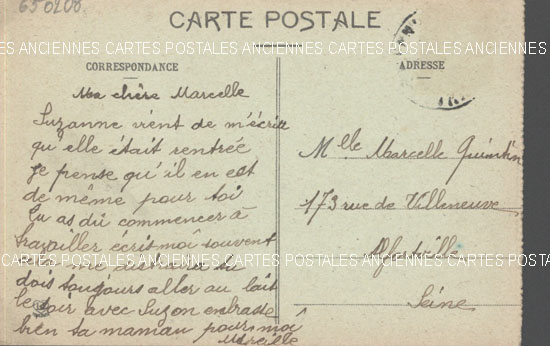 650208
CARTE POSTALE
ANCIENNES CARTES POSTALES ANCIENNES CARTES POSTALES ANCIENNES
CORRESPONDANCE
Ma chère Marcelle
Suzanne vient de m'écrire
qu'elle était rentrée
je pense qu'il en est
de même pour toi
tu as dû commencer à
travailler écris moi souvent
dois toujours aller au lait
le soir avec Suzon embrasse
bien ta maman pour moi
Mireille
ADRESSE
Mlle Marcelle Quintin
173 rue de Villeneuve
Alfortville
Seine
CARTES POSTALES ANCIENNES CARTES POSTALES ANCIENNES CARTES